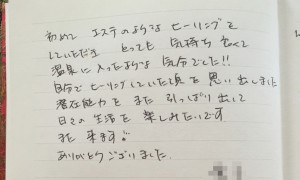 初めて エステのような ヒーリングを
していただき とっても 気持ち良くて
温泉に入ったような 気分でした!!
自分で ヒーリングしていた頃を 思い出しました
潜在能力を また 引っぱり出して
日々の生活を 楽しみたいです
また 来ます!!
ありがとうございました。